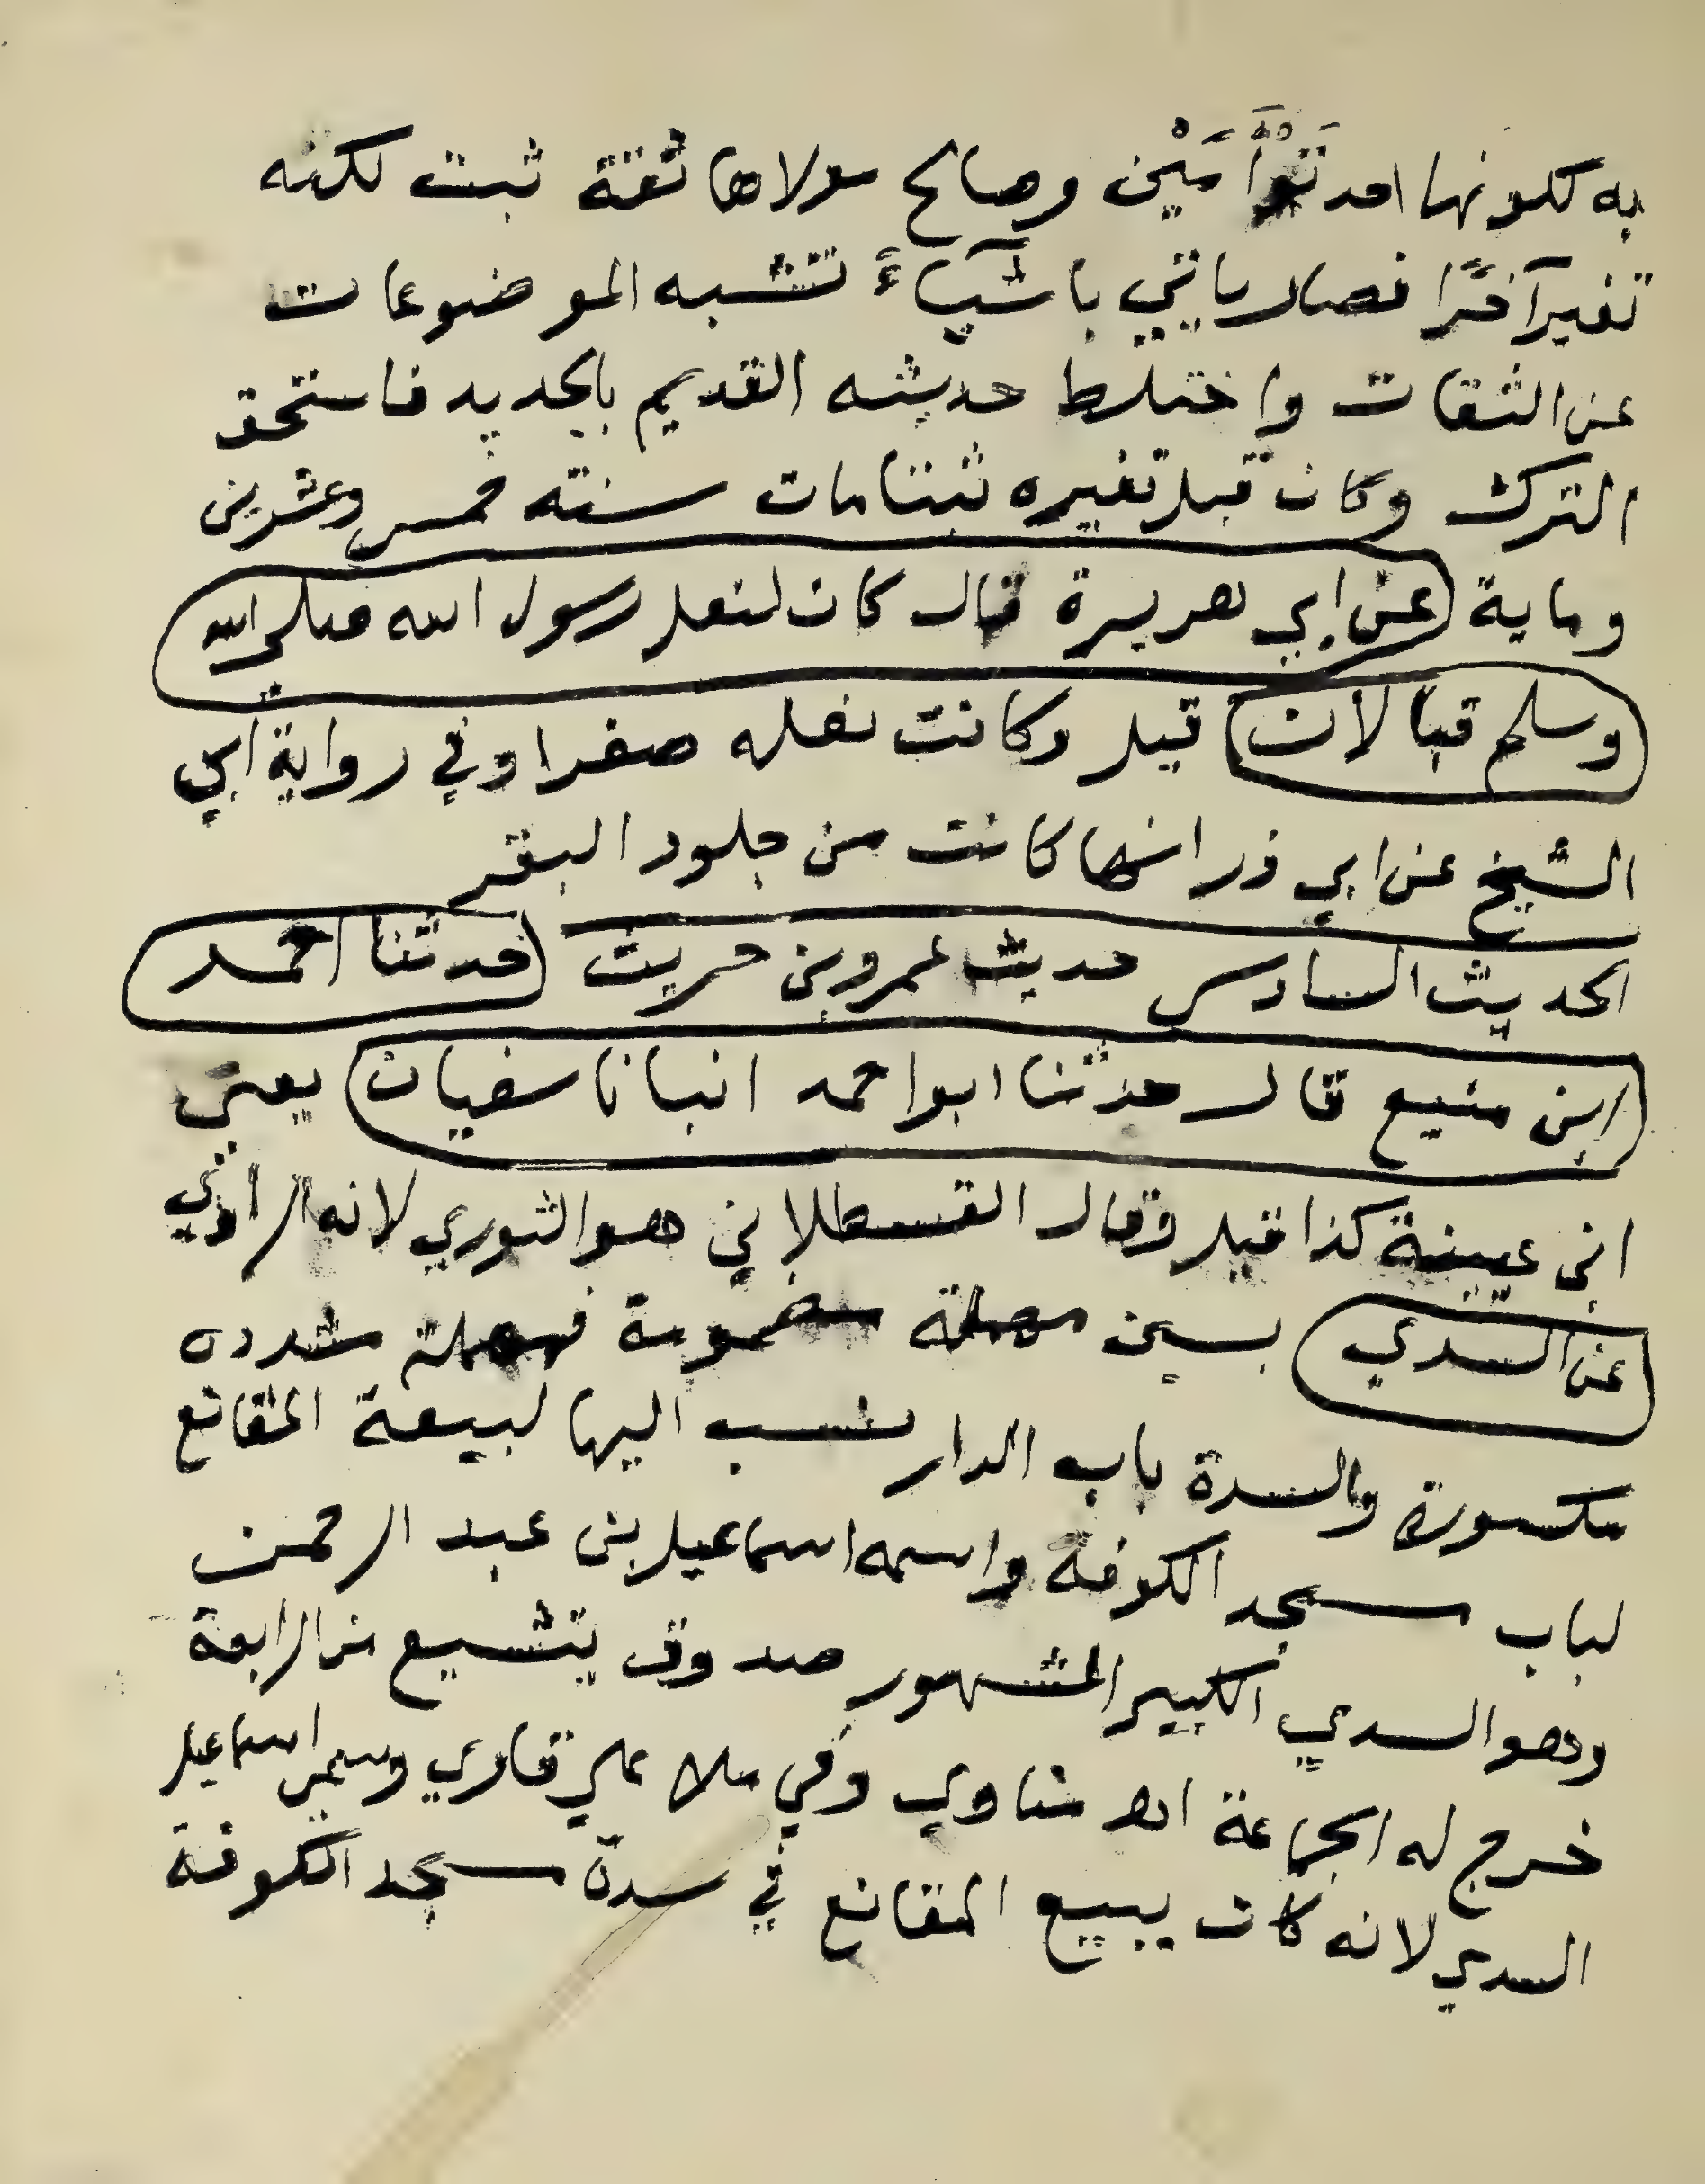 به لكونها احد تَوْأَمَيْن وصالح مولاها ثقة ثبت لكنه
تغير آخرًا فصار ياتي باشيآءَ تشبه الموضوعات
عن الثقات واختلط حديثه القديم بالجديد فاستحق
الترك وكان قبل تغيره ثبتا مات سنته خمس وعشرين
وماية عن ابي هريرة قال كان لنعل رسول الله صلى الله
وسلم قبالان قيل وكانت نعله صفرا وفي رواية ابي
الشيخ عن ابي ذر انها كانت من جلود البقر
الحديث السادس حديث عمرو بن حريث حدثنا احمد
ابن منيع قال حدثنا ابو احمد انبانا سفيان يعني
ابن عيينة كذا قيل وقال القسطلاني هو الثوري لانه الراوي
عن السدي بسين مهملة مضمومة فمهملة مشدده
مكسورة والسدة باب الدار نسب اليها لبيعة المقانع
لباب مسجد الكوفة واسمه اسماعيل بن عبد الرحمن
وهو السدي الكبير المشهور صدوق يتشيع من الرابعة
خرج له الجماعة اه مناوي وفي ملا علي قاري وسمي اسماعيل
السدي لانه كان يبيع المقانع في سدة مسجد الكوفة